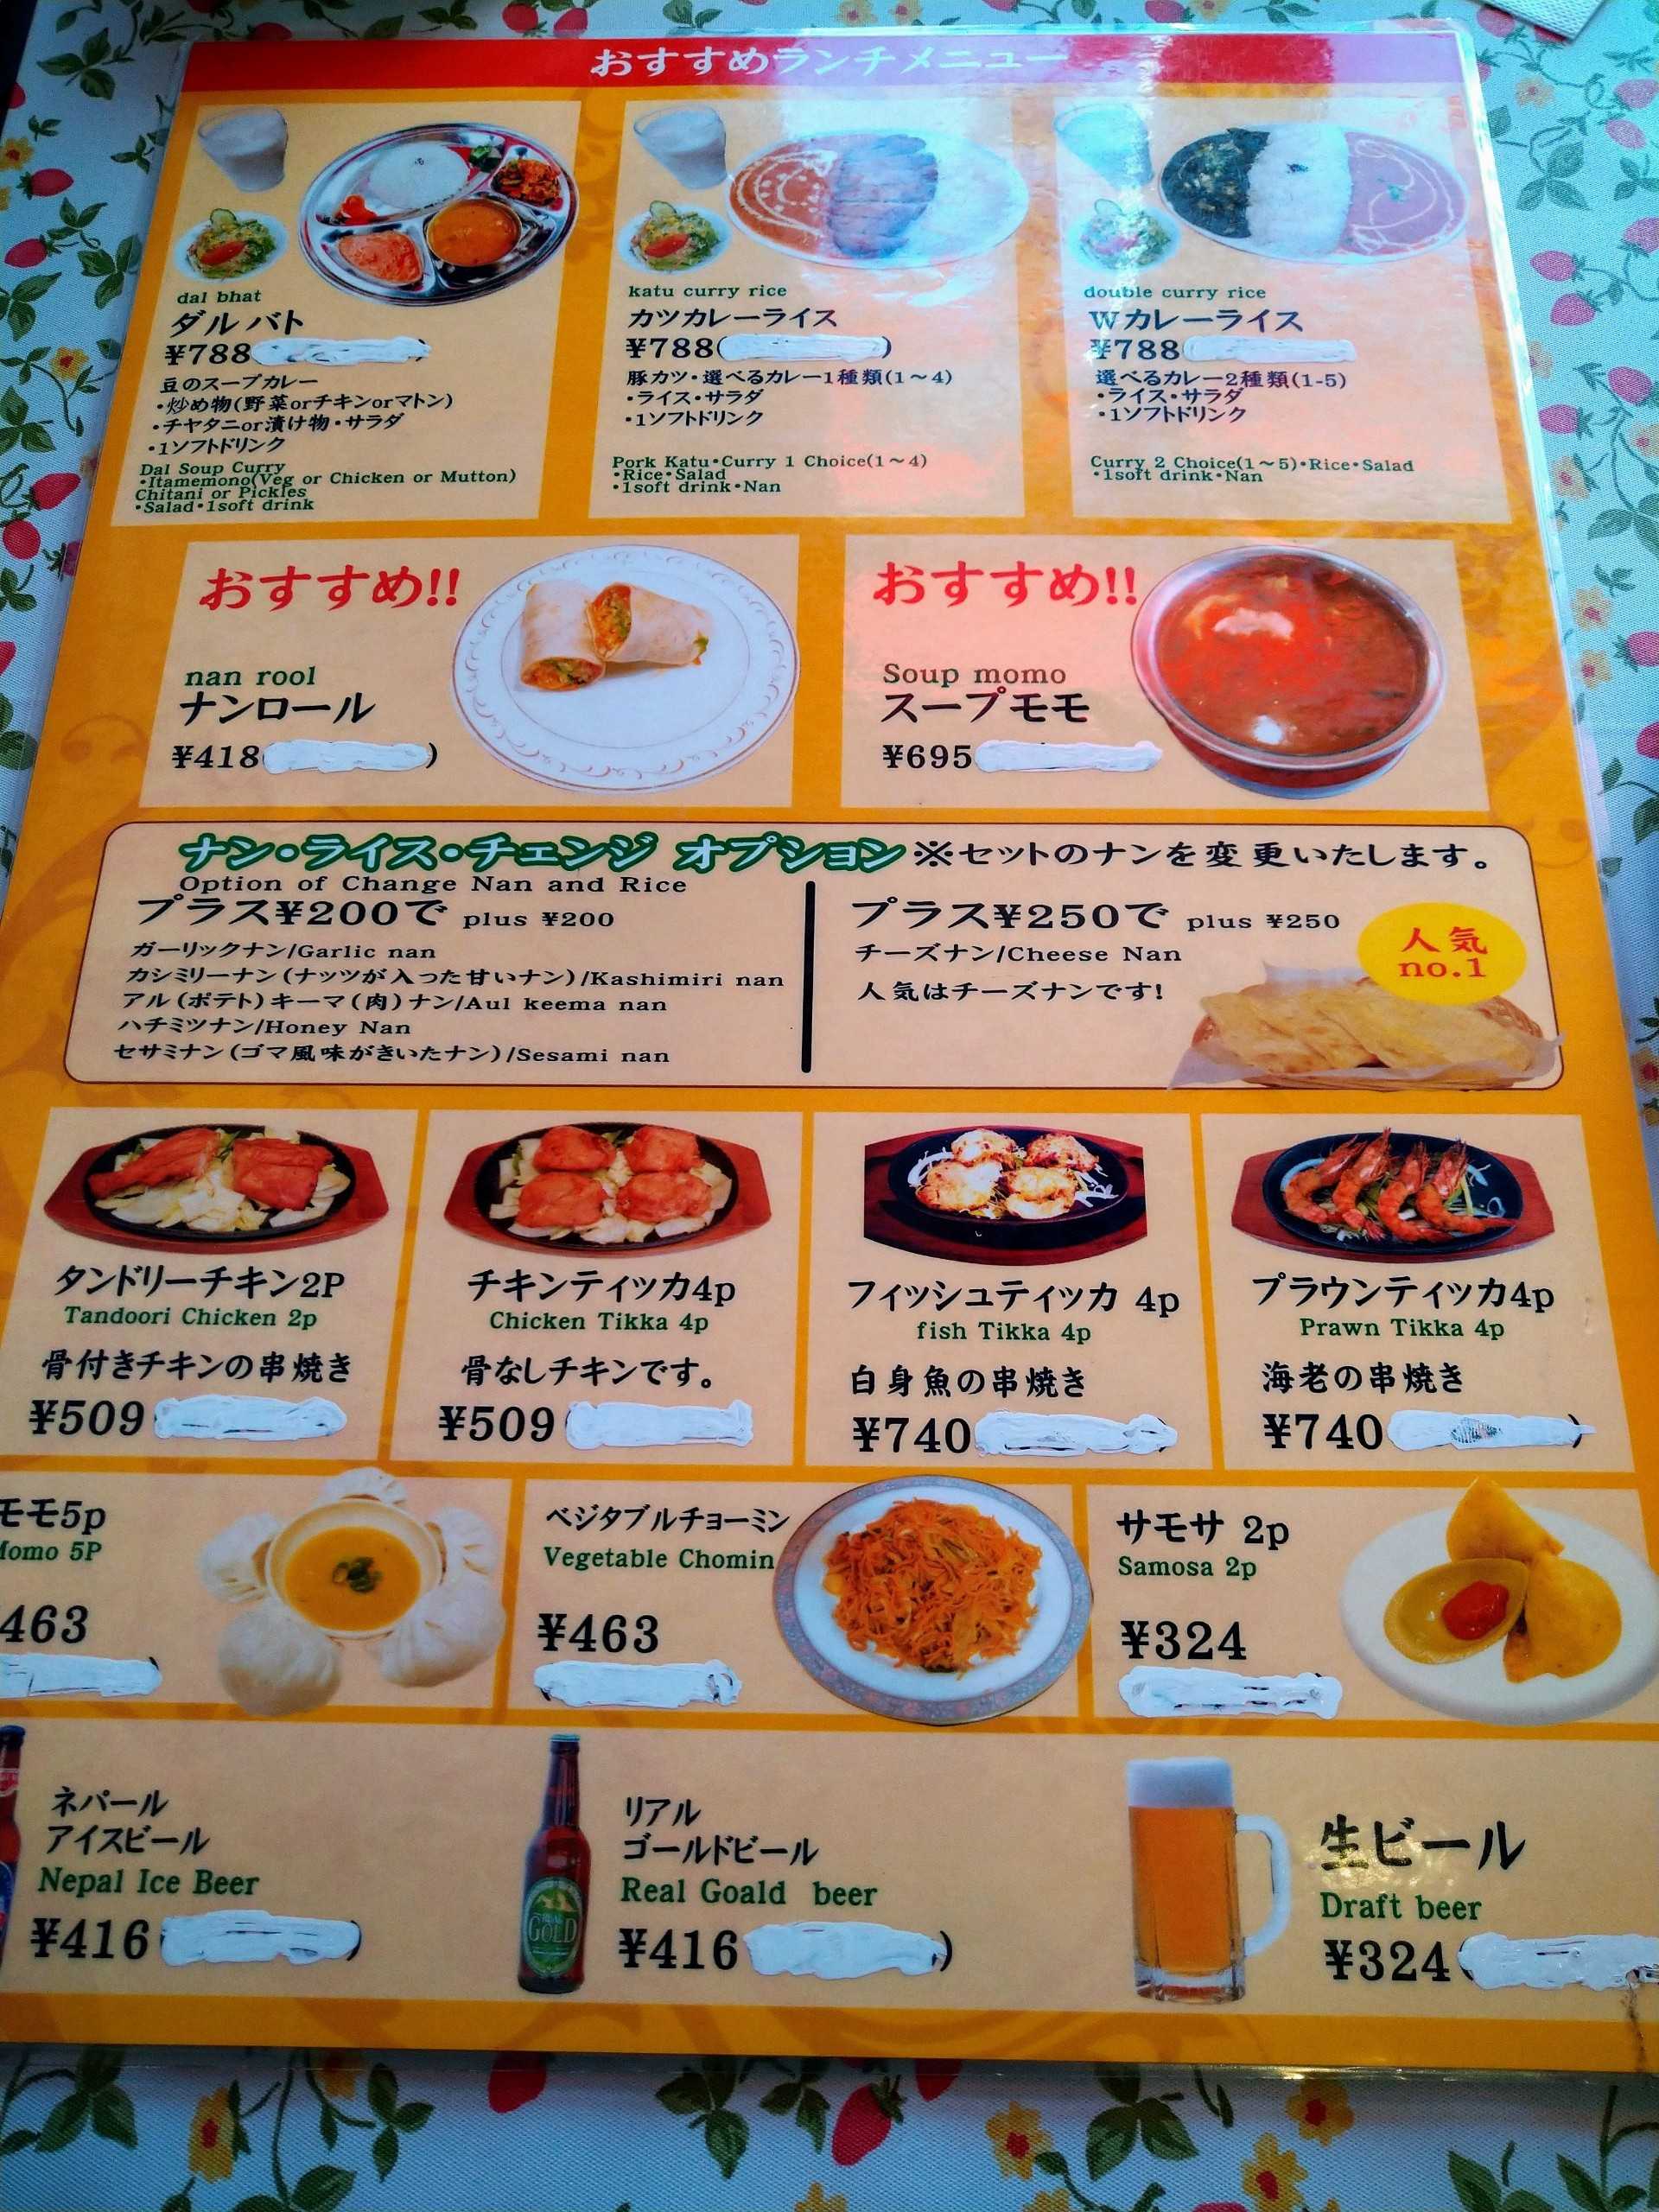 おすすめランチメニュー
dal bhat
ダルバト
¥788
豆のスープカレー
・炒め物(野菜orチキンorマトン)
・チヤタニor漬け物・サラダ
・1ソフトドリンク
Dal Soup Curry
・Itamemono(Veg or Chicken or Mutton)
Chitani or Pickles
・Salad・1soft drink
katu curry rice
カツカレーライス
¥788( )
豚カツ・選べるカレー1種類(1～4)
・ライス・サラダ
・1ソフトドリンク
Pork Katu・Curry 1 Choice(1～4)
・Rice・Salad
・1soft drink・Nan
double curry rice
Wカレーライス
¥788
選べるカレー2種類(1-5)
・ライス・サラダ
・1ソフトドリンク
Curry 2 Choice(1～5)・Rice・Salad
・1soft drink・Nan
おすすめ!!
nan rool
ナンロール
¥418( )
おすすめ!!
Soup momo
スープモモ
¥695
ナン・ライス・チェンジ オプション ※セットのナンを変更いたします。
Option of Change Nan and Rice
プラス¥200で plus ¥200
ガーリックナン/Garlic nan
カシミリーナン(ナッツが入った甘いナン)/Kashimiri nan
アル(ポテト)キーマ(肉)ナン/Aul keema nan
ハチミツナン/Honey Nan
セサミナン(ゴマ風味がきいたナン)/Sesami nan
プラス¥250で plus ¥250
チーズナン/Cheese Nan
人気はチーズナンです!
人気
no.1
タンドリーチキン2P
Tandoori Chicken 2p
骨付きチキンの串焼き
¥509
チキンティッカ4p
Chicken Tikka 4p
骨なしチキンです。
¥509
フィッシュティッカ 4p
fish Tikka 4p
白身魚の串焼き
¥740
プラウンティッカ4p
Prawn Tikka 4p
海老の串焼き
¥740
モモ5p
Momo 5P
463
ベジタブルチョーミン
Vegetable Chomin
¥463
サモサ 2p
Samosa 2p
¥324
ネパール
アイスビール
Nepal Ice Beer
¥416
リアル
ゴールドビール
Real Goald beer
¥416
GOLD
生ビール
Draft beer
¥324